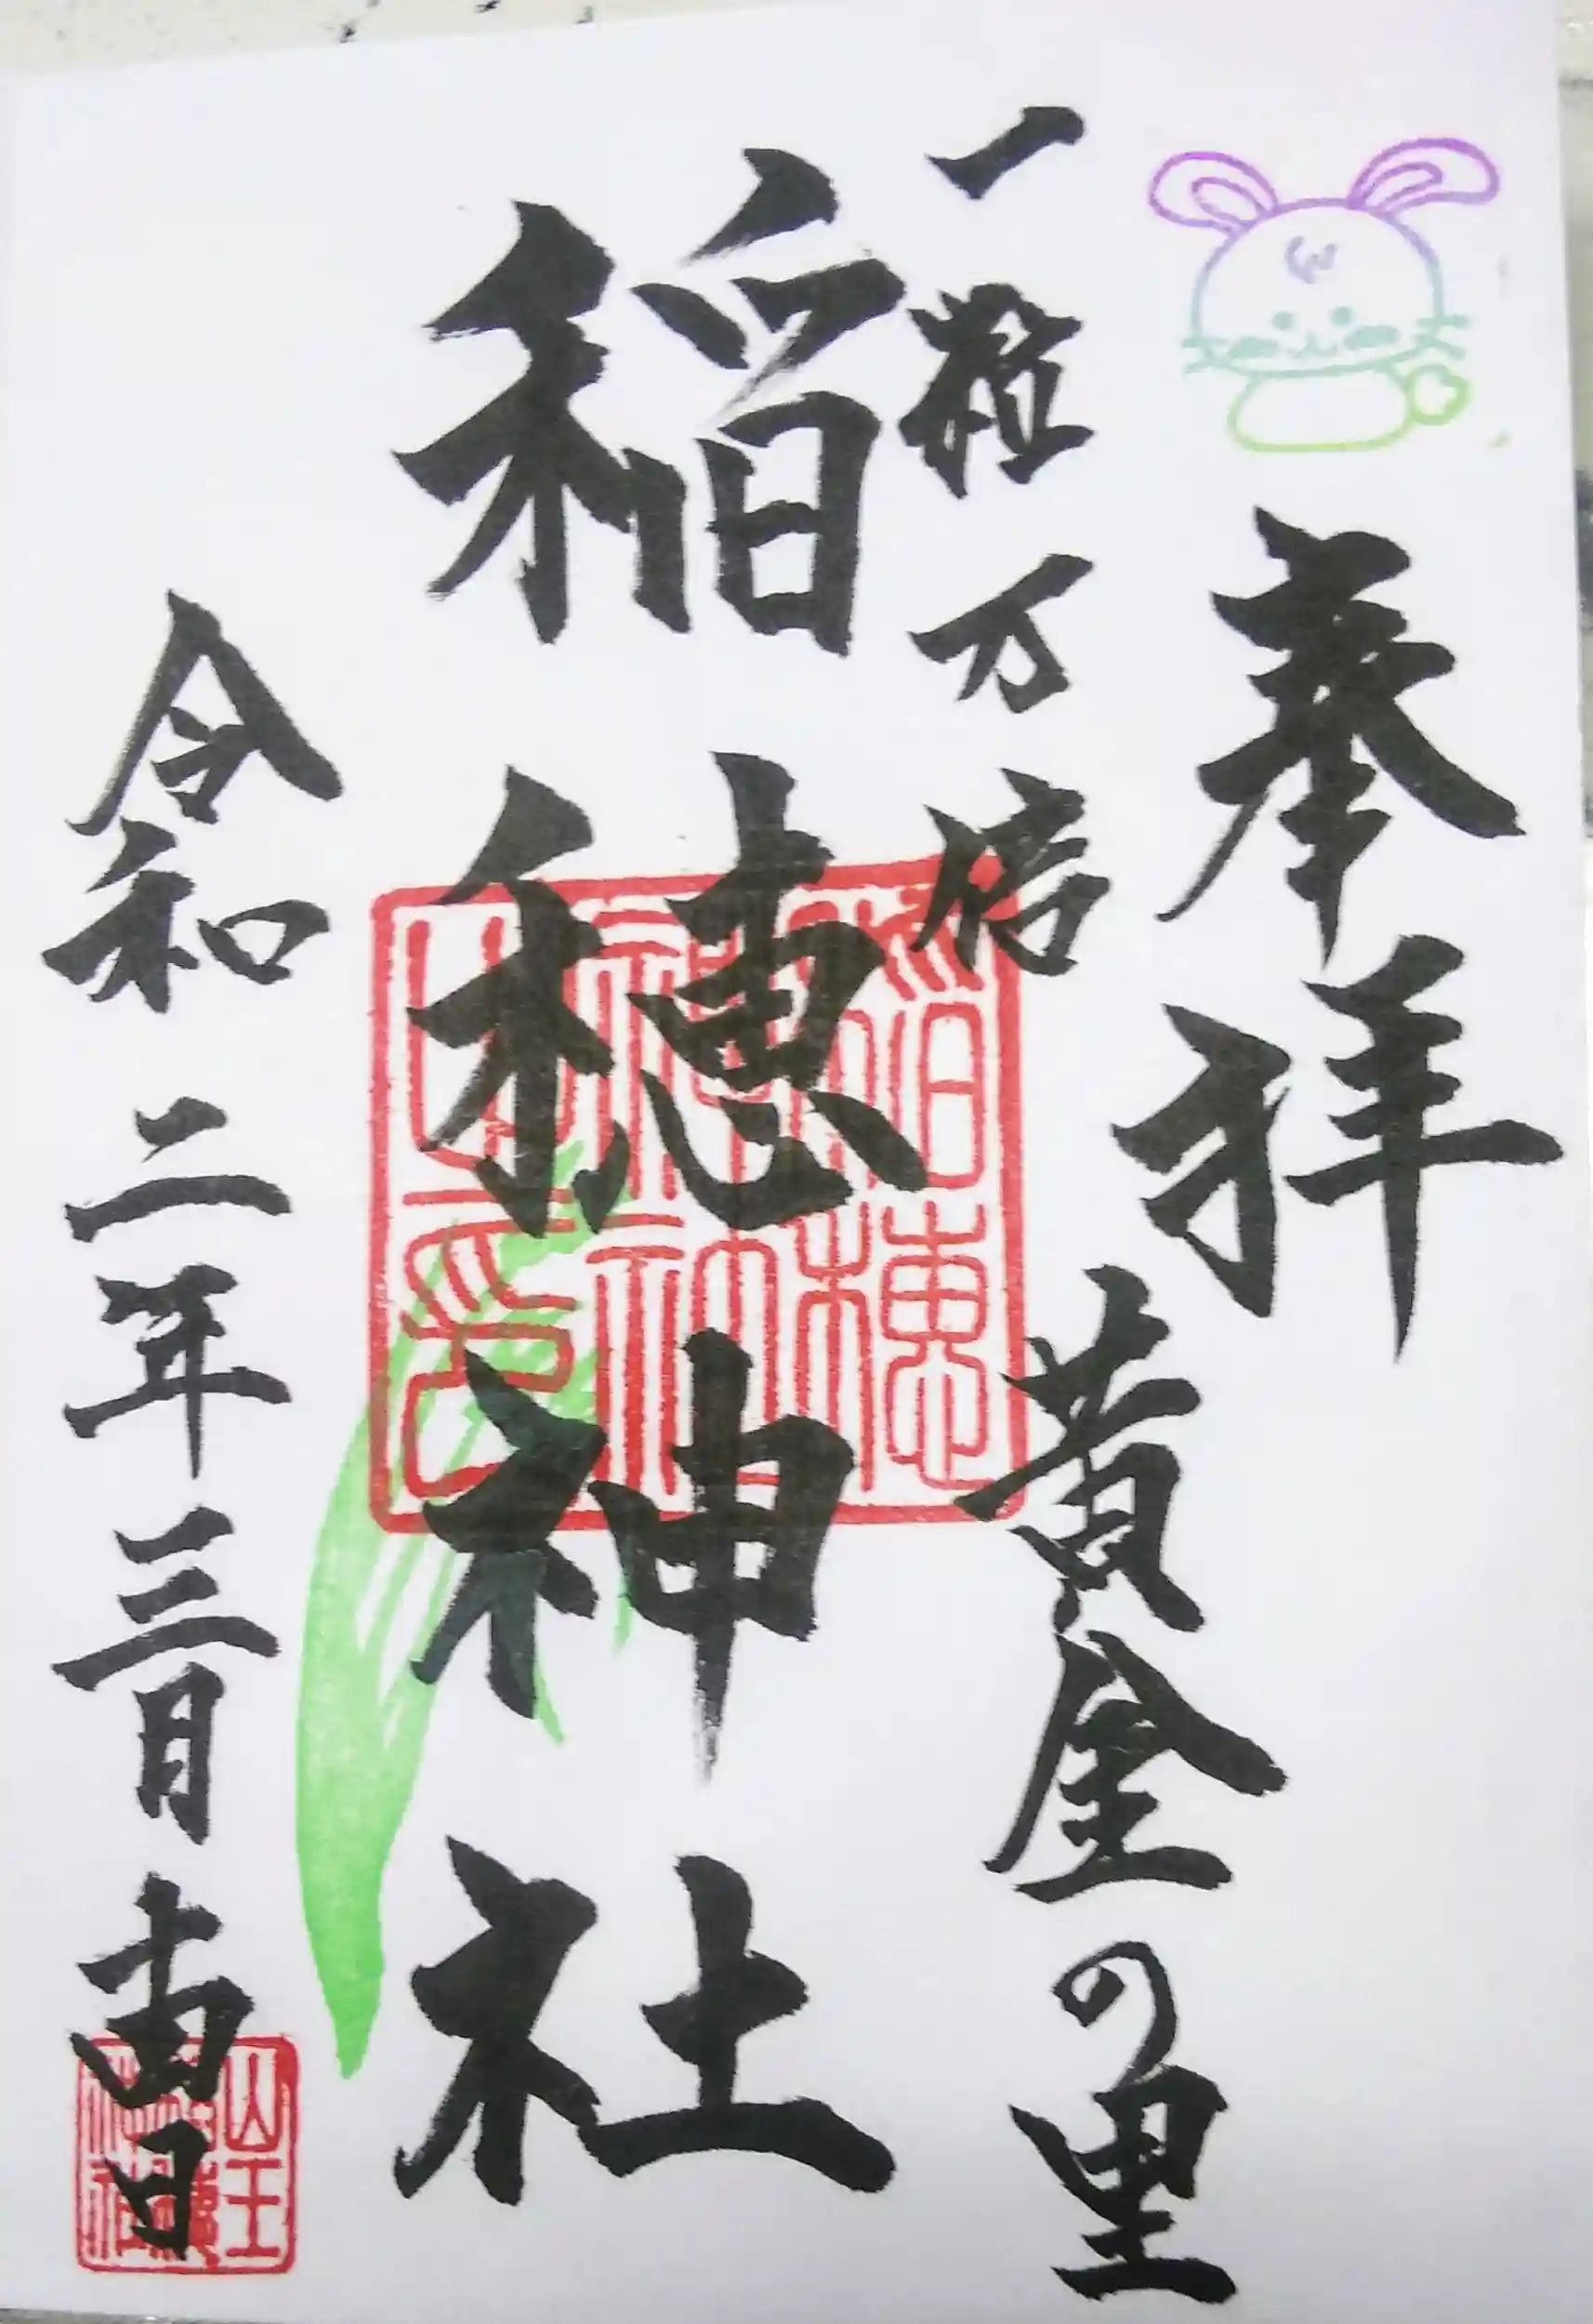 奉拝
一粒万倍
黄金の里
稲穂神社
令和二年三月吉日
稲穂神社之印